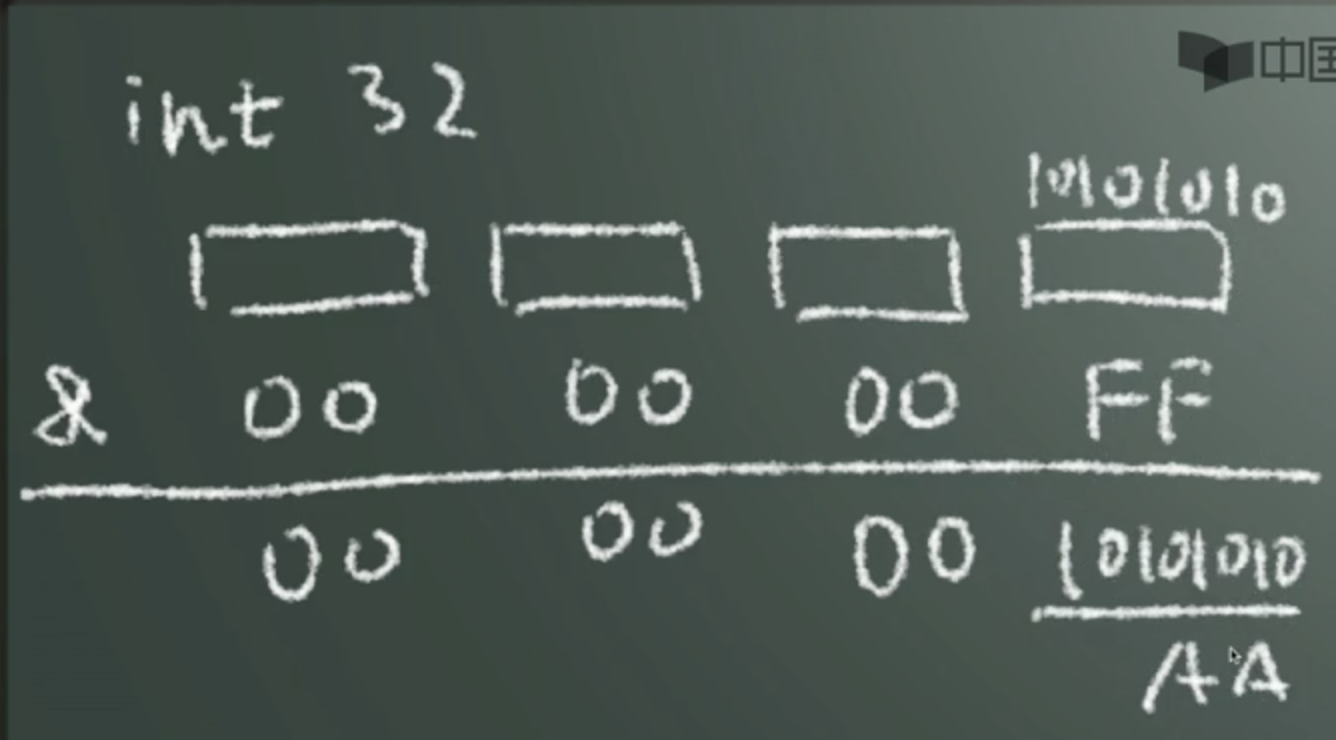 int 32
中国
10101010
& 00 00 00 FF
00 00 00 10101010
AA